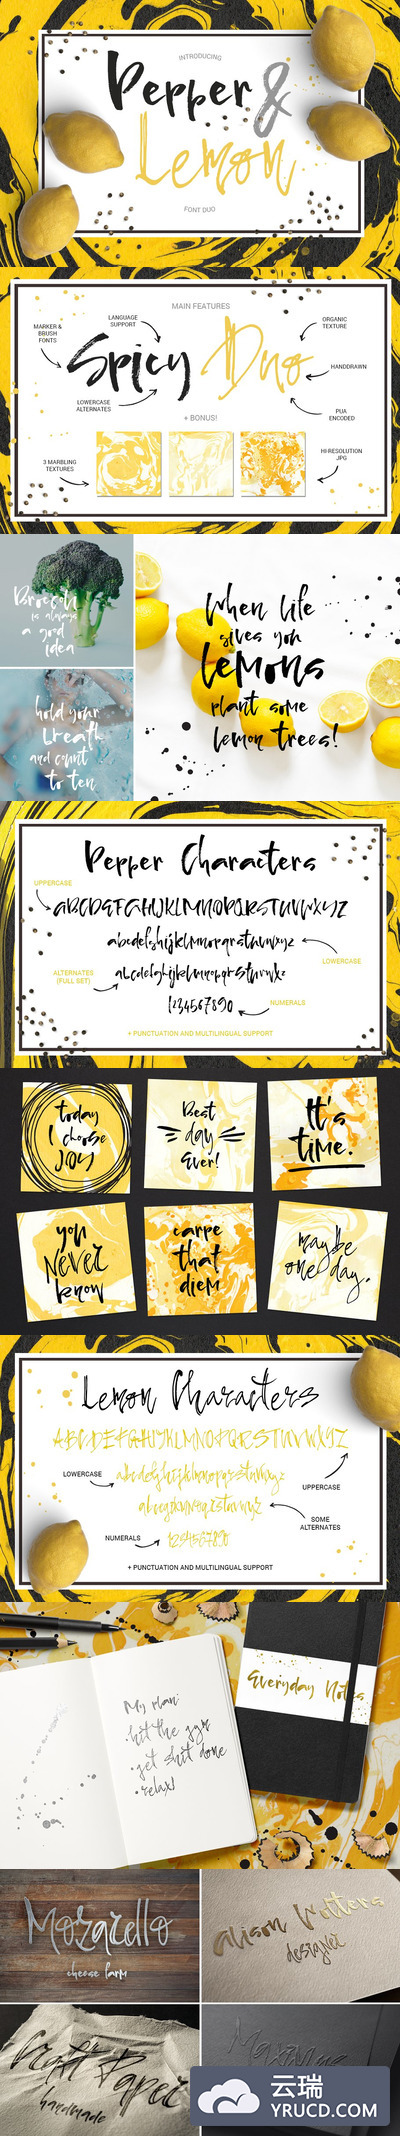 INTRODUCING
Pepper &
Lemon
FONT DUO
MAIN FEATURES
MARKER &
BRUSH
FONTS
LANGUAGE
SUPPORT
ORGANIC
TEXTURE
Spicy Duo
HANDDRAWN
LOWERCASE
ALTERNATES
PUA
ENCODED
+ BONUS!
3 MARBLING
TEXTURES
HI-RESOLUTION
JPG
Broccoli
is always
a good
idea
When life
gives you
lemons
plant some
lemon trees!
hold your
breath
and count
to ten
Pepper Characters
UPPERCASE
ABCDEFGHIJKLMNOPQRSTUVWXYZ
abcdefghijklmnopqrstuvwxyz
LOWERCASE
ALTERNATES
(FULL SET)
abcdefghijklmnopqrstuvwxyz
1234567890
NUMERALS
+ PUNCTUATION AND MULTILINGUAL SUPPORT
today
I choose
JOY
Best
day
Ever!
It's
time.
you
Never
know
carpe
that
diem
maybe
one day.
Lemon Characters
ABCDEFGHIJKLMNOPQRSTUVWXYZ
LOWERCASE
abcdefghijklmnopqrstuvwxyz
UPPERCASE
abcdefghijklmnopqrstuvwxyz
SOME
ALTERNATES
NUMERALS
1234567890
+ PUNCTUATION AND MULTILINGUAL SUPPORT
My plan:
• hit the gym
• get shit done
• relax!
Everyday Notes
Mozarello
cheese farm
Alison Wotters
designer
Craft Paper
handmade
云瑞
YRUCD.COM